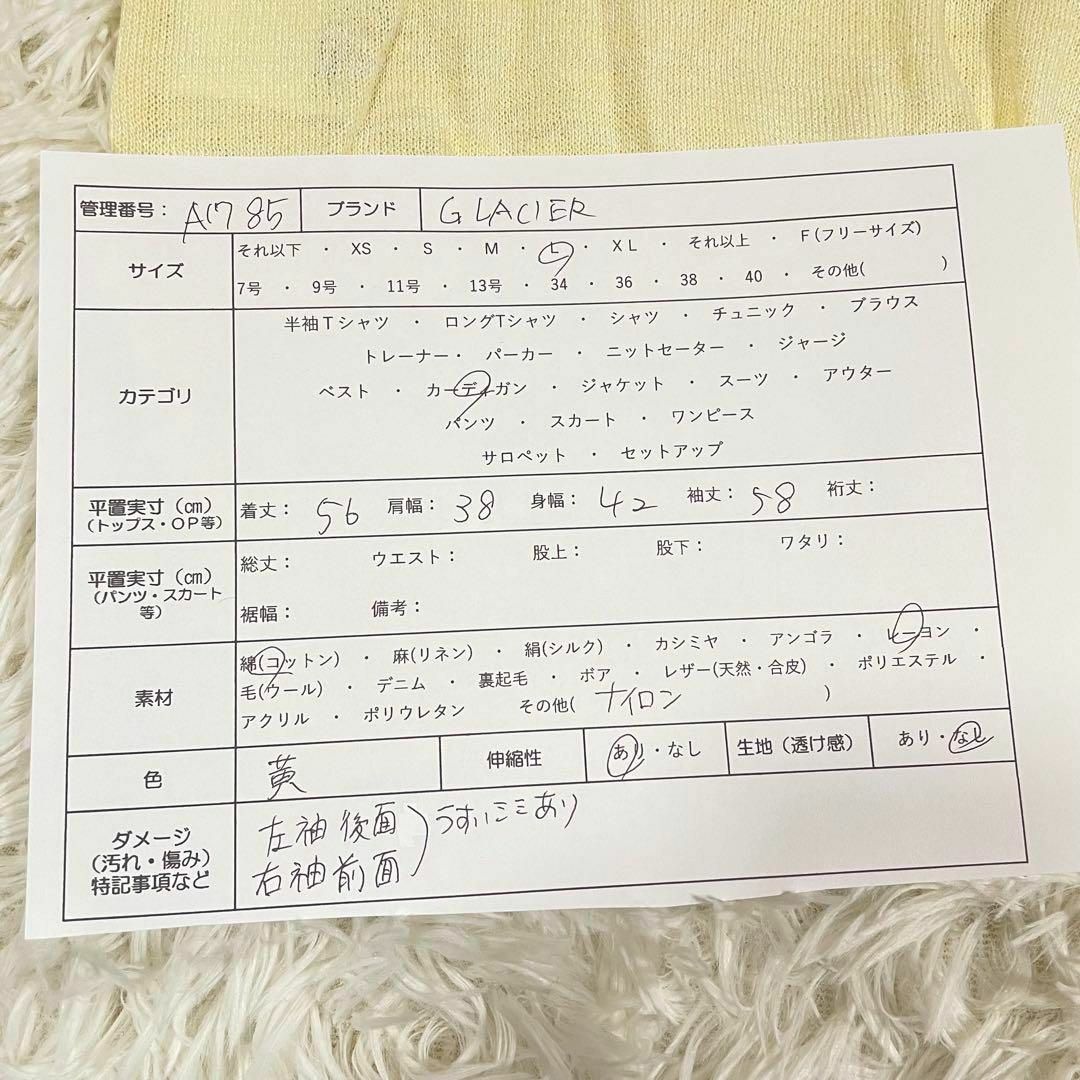 管理番号： A1785 ブランド GLACIER
サイズ
それ以下 ・ XS ・ S ・ M ・ L ・ XL ・ それ以上 ・ F(フリーサイズ)
7号 ・ 9号 ・ 11号 ・ 13号 ・ 34 ・ 36 ・ 38 ・ 40 ・ その他( )
カテゴリ
半袖Tシャツ ・ ロングTシャツ ・ シャツ ・ チュニック ・ ブラウス
トレーナー・ パーカー ・ ニットセーター ・ ジャージ
ベスト ・ カーディガン ・ ジャケット ・ スーツ ・ アウター
パンツ ・ スカート ・ ワンピース
サロペット ・ セットアップ
平置実寸（㎝）
（トップス・OP等）
着丈： 56 肩幅： 38 身幅： 42 袖丈： 58 裄丈：
平置実寸（㎝）
（パンツ・スカート
等）
総丈： ウエスト： 股上： 股下： ワタリ：
裾幅： 備考：
素材
綿(コットン) ・ 麻(リネン) ・ 絹(シルク) ・ カシミヤ ・ アンゴラ ・ レーヨン ・
毛(ウール) ・ デニム ・ 裏起毛 ・ ボア ・ レザー(天然・合皮) ・ ポリエステル ・
アクリル ・ ポリウレタン その他( ナイロン )
色 黄 伸縮性 あり・なし 生地（透け感） あり・なし
ダメージ
（汚れ・傷み）
特記事項など
左袖後面
右袖前面
うすいシミあり